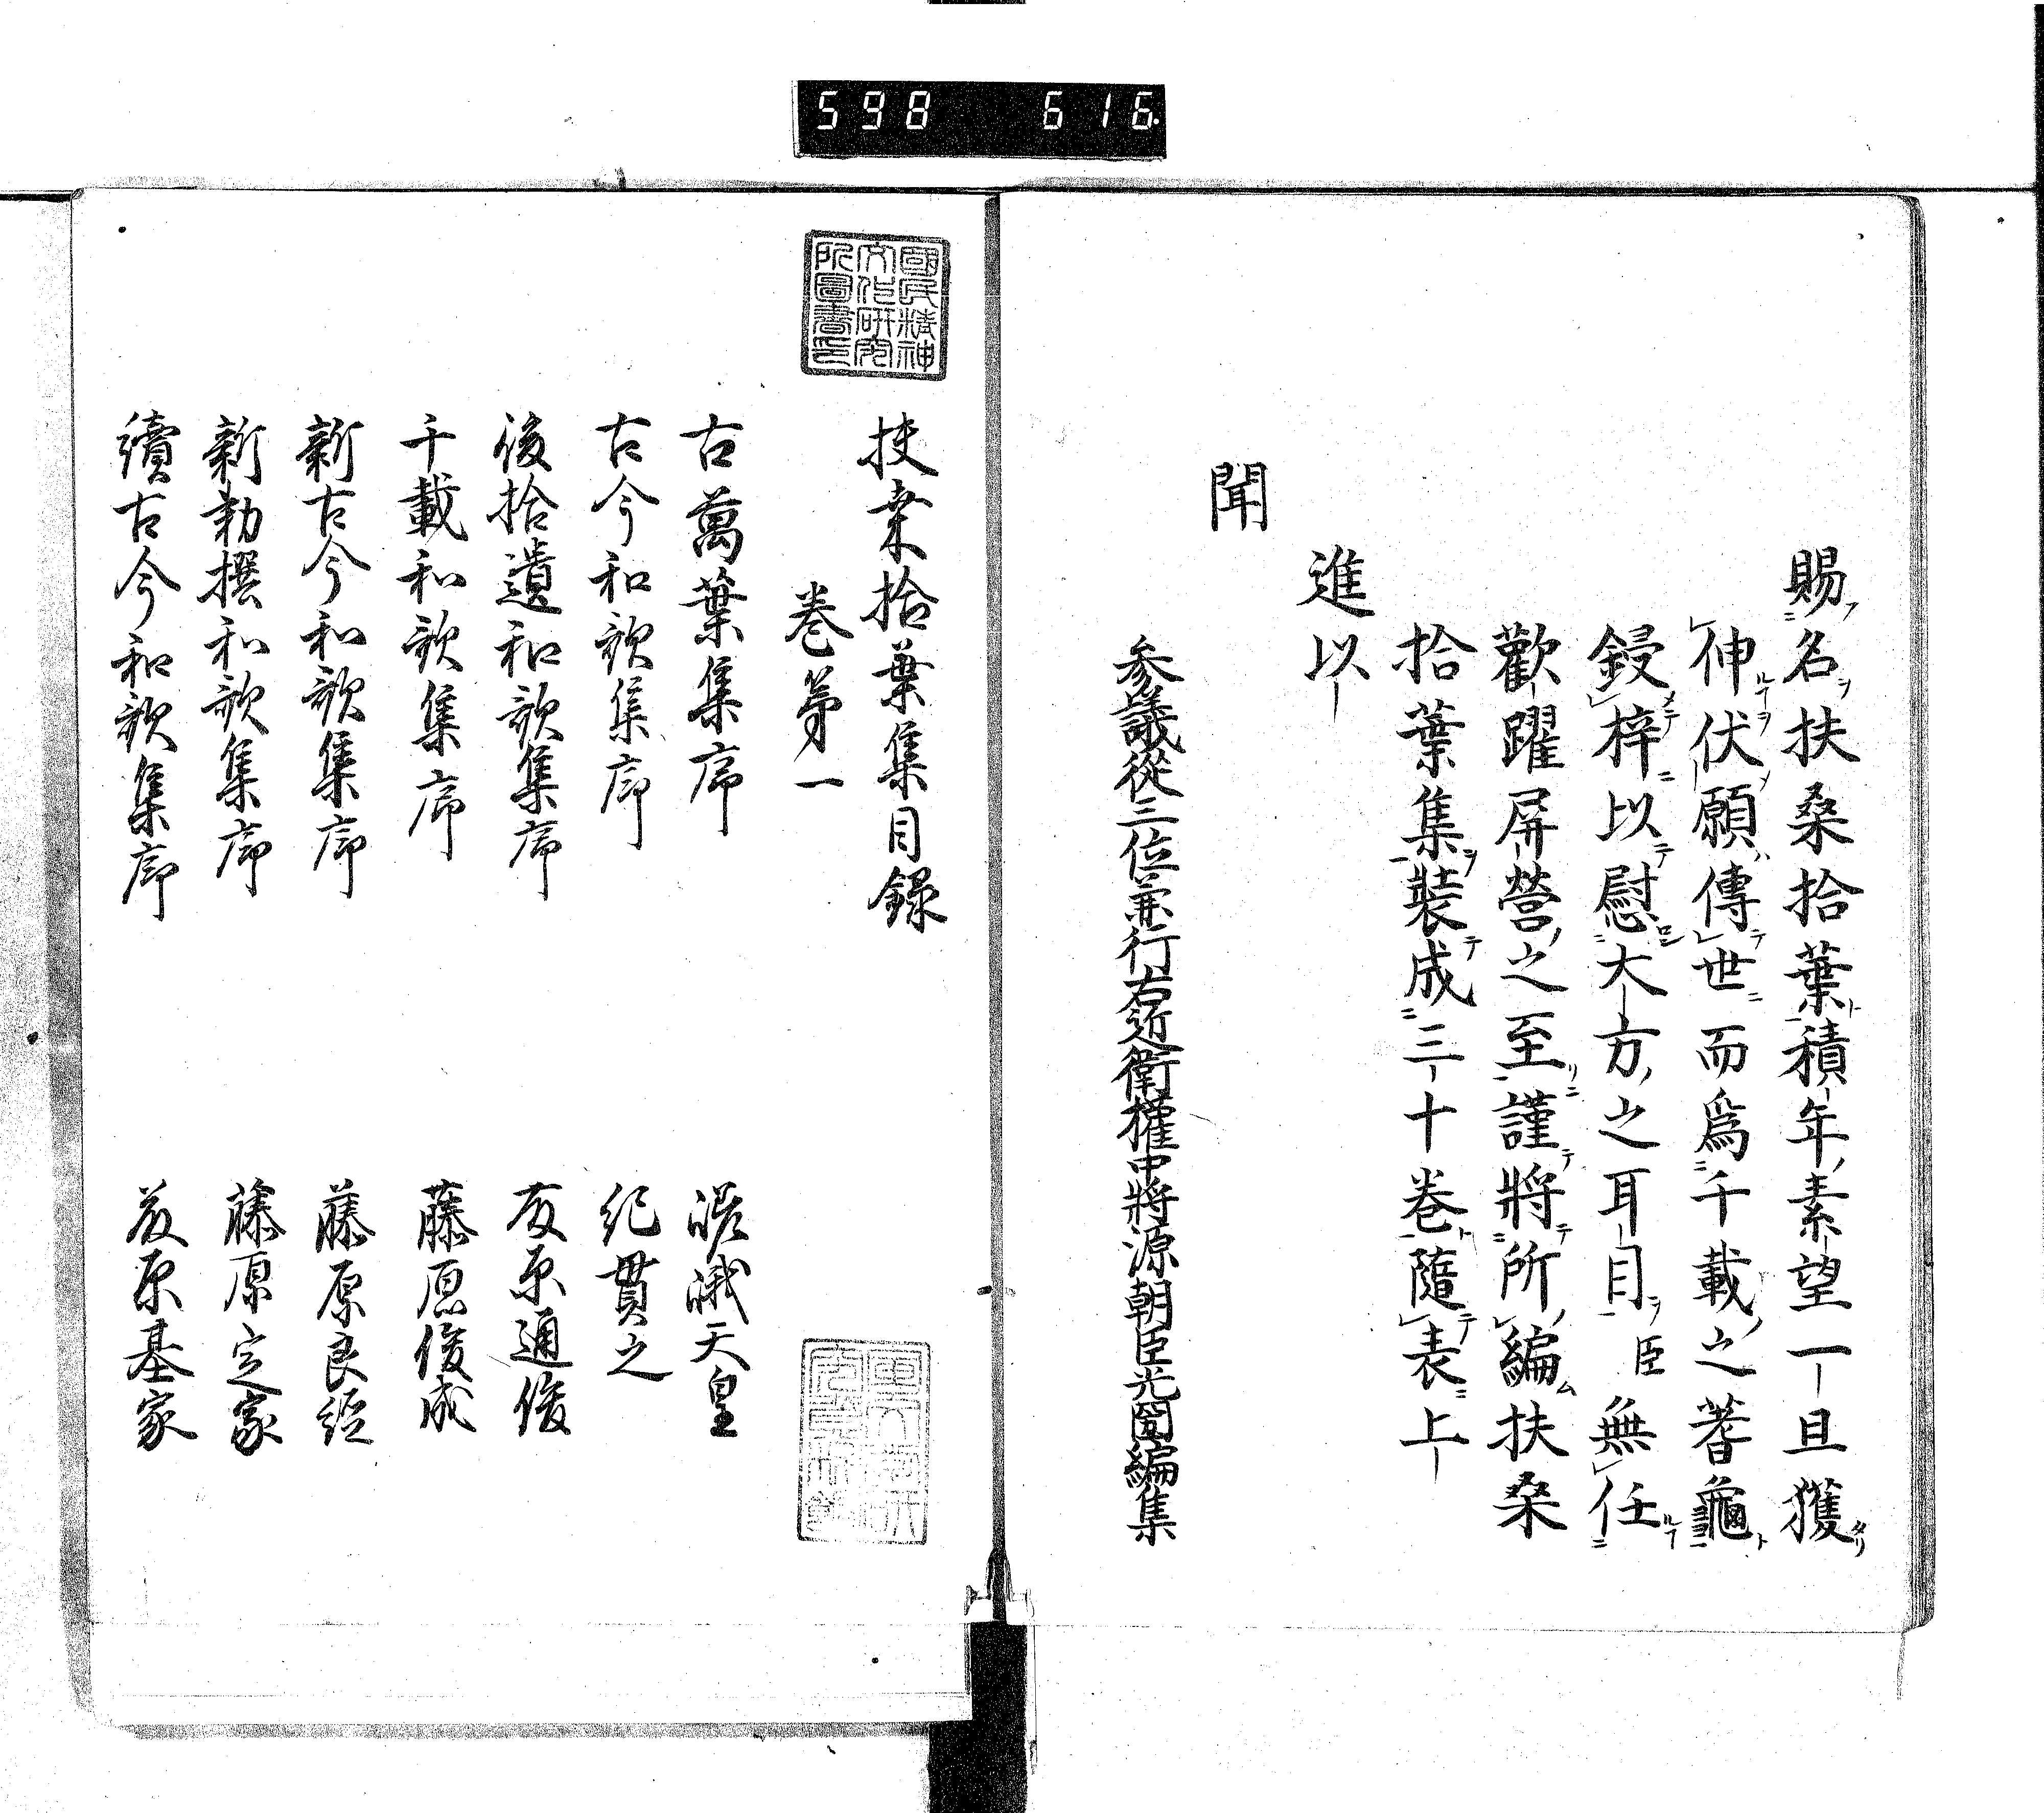 598 616
賜名扶桑拾葉積年素望一旦獲
伸伏願傳世而爲千載之蓍龜
鋟梓以慰大方之耳目臣無任
歡躍屏營之至謹將所編扶桑
拾葉集裝成三十巻隨表上
進以
聞
参議從三位兼行右近衛權中將源朝臣光圀編集
國民精神文化研究所圖書印
扶桒拾葉集目録
巻第一
古萬葉集序 嵯峨天皇
古今和歌集序 紀貫之
後拾遺和歌集序 藤原通俊
千載和歌集序 藤原俊成
新古今和歌集序 藤原良経
新勅撰和歌集序 藤原定家
續古今和歌集序 藤原基家